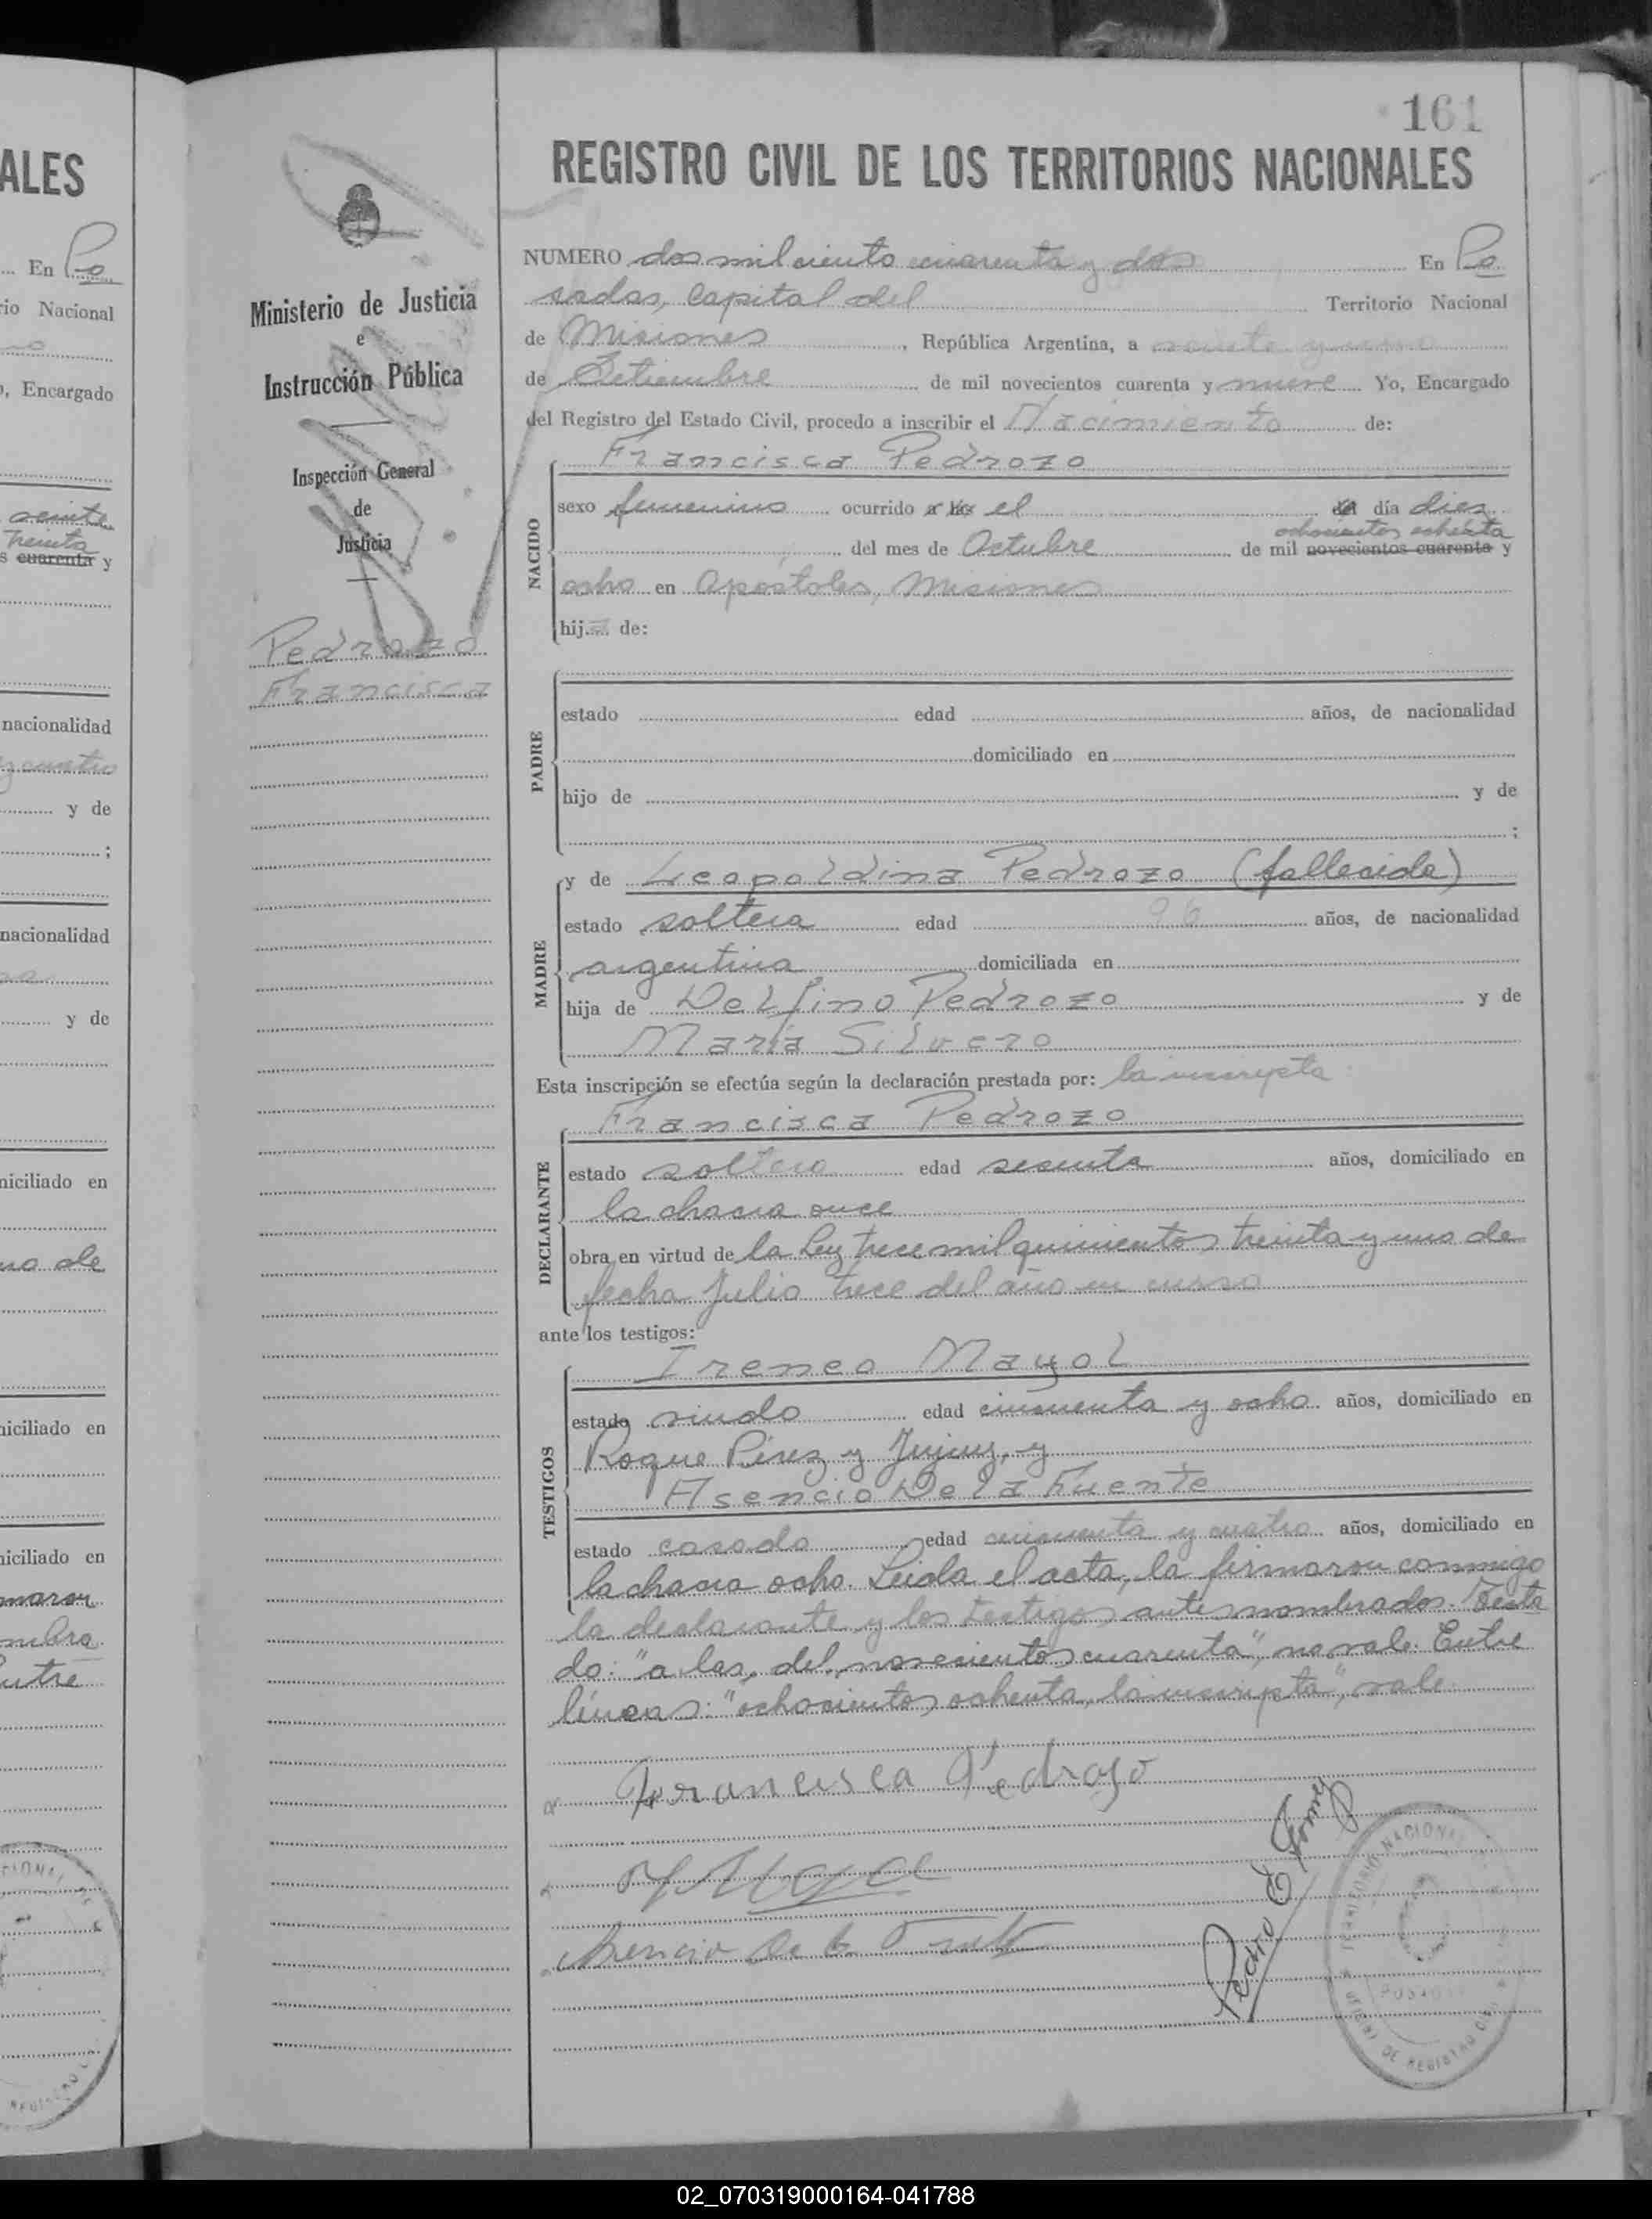 161
REGISTRO CIVIL DE LOS TERRITORIOS NACIONALES
Ministerio de Justicia
e
Instrucción Pública
Inspección General
de
Justicia
Pedrozo
Francisca
NUMERO dos mil ciento cuarenta y dos En Po
sadas, Capital del Territorio Nacional
de Misiones, República Argentina, a veinte y uno
de Setiembre de mil novecientos cuarenta y nueve Yo, Encargado
del Registro del Estado Civil, procedo a inscribir el Nacimiento de:
Francisca Pedrozo
NACIDO
sexo femenino ocurrido a las el del día diez
ochocientos ochenta
del mes de Octubre de mil novecientos cuarenta y
ocho en Apóstoles, Misiones
hija de:
PADRE
estado edad años, de nacionalidad
domiciliado en
hijo de y de
;
MADRE
y de Leopoldina Pedrozo (fallecida)
estado soltera edad 96 años, de nacionalidad
argentina domiciliada en
hija de Delfino Pedrozo y de
María Silvero
Esta inscripción se efectúa según la declaración prestada por: la inscripta
Francisca Pedrozo
DECLARANTE
estado soltera edad sesenta años, domiciliado en
la chacra once
obra en virtud de la Ley trece mil quinientos treinta y uno de
fecha Julio trece del año en curso
ante los testigos:
Ireneo Mayol
TESTIGOS
estado viudo edad cincuenta y ocho años, domiciliado en
Roque Pérez y Jujuy, y
Asencio De la Fuente
estado casado edad cincuenta y cuatro años, domiciliado en
la chacra ocho. Leida el acta, la firmaron conmigo
la declarante y los testigos antes nombrados. Testa
do: "a las, del, novecientos cuarenta", no vale. Entre
líneas: "ochocientos ochenta, la inscripta", vale.
Francisca Pedrozo
Asencio De la Fuente
Pedro E Gomez
ALES
En Po
rio Nacional
, Encargado
veinte
treinta
s cuarenta y
nacionalidad
y cuatro
y de
;
nacionalidad
y de
niciliado en
no de
niciliado en
niciliado en
maron
mbra
utre
02_070319000164-041788